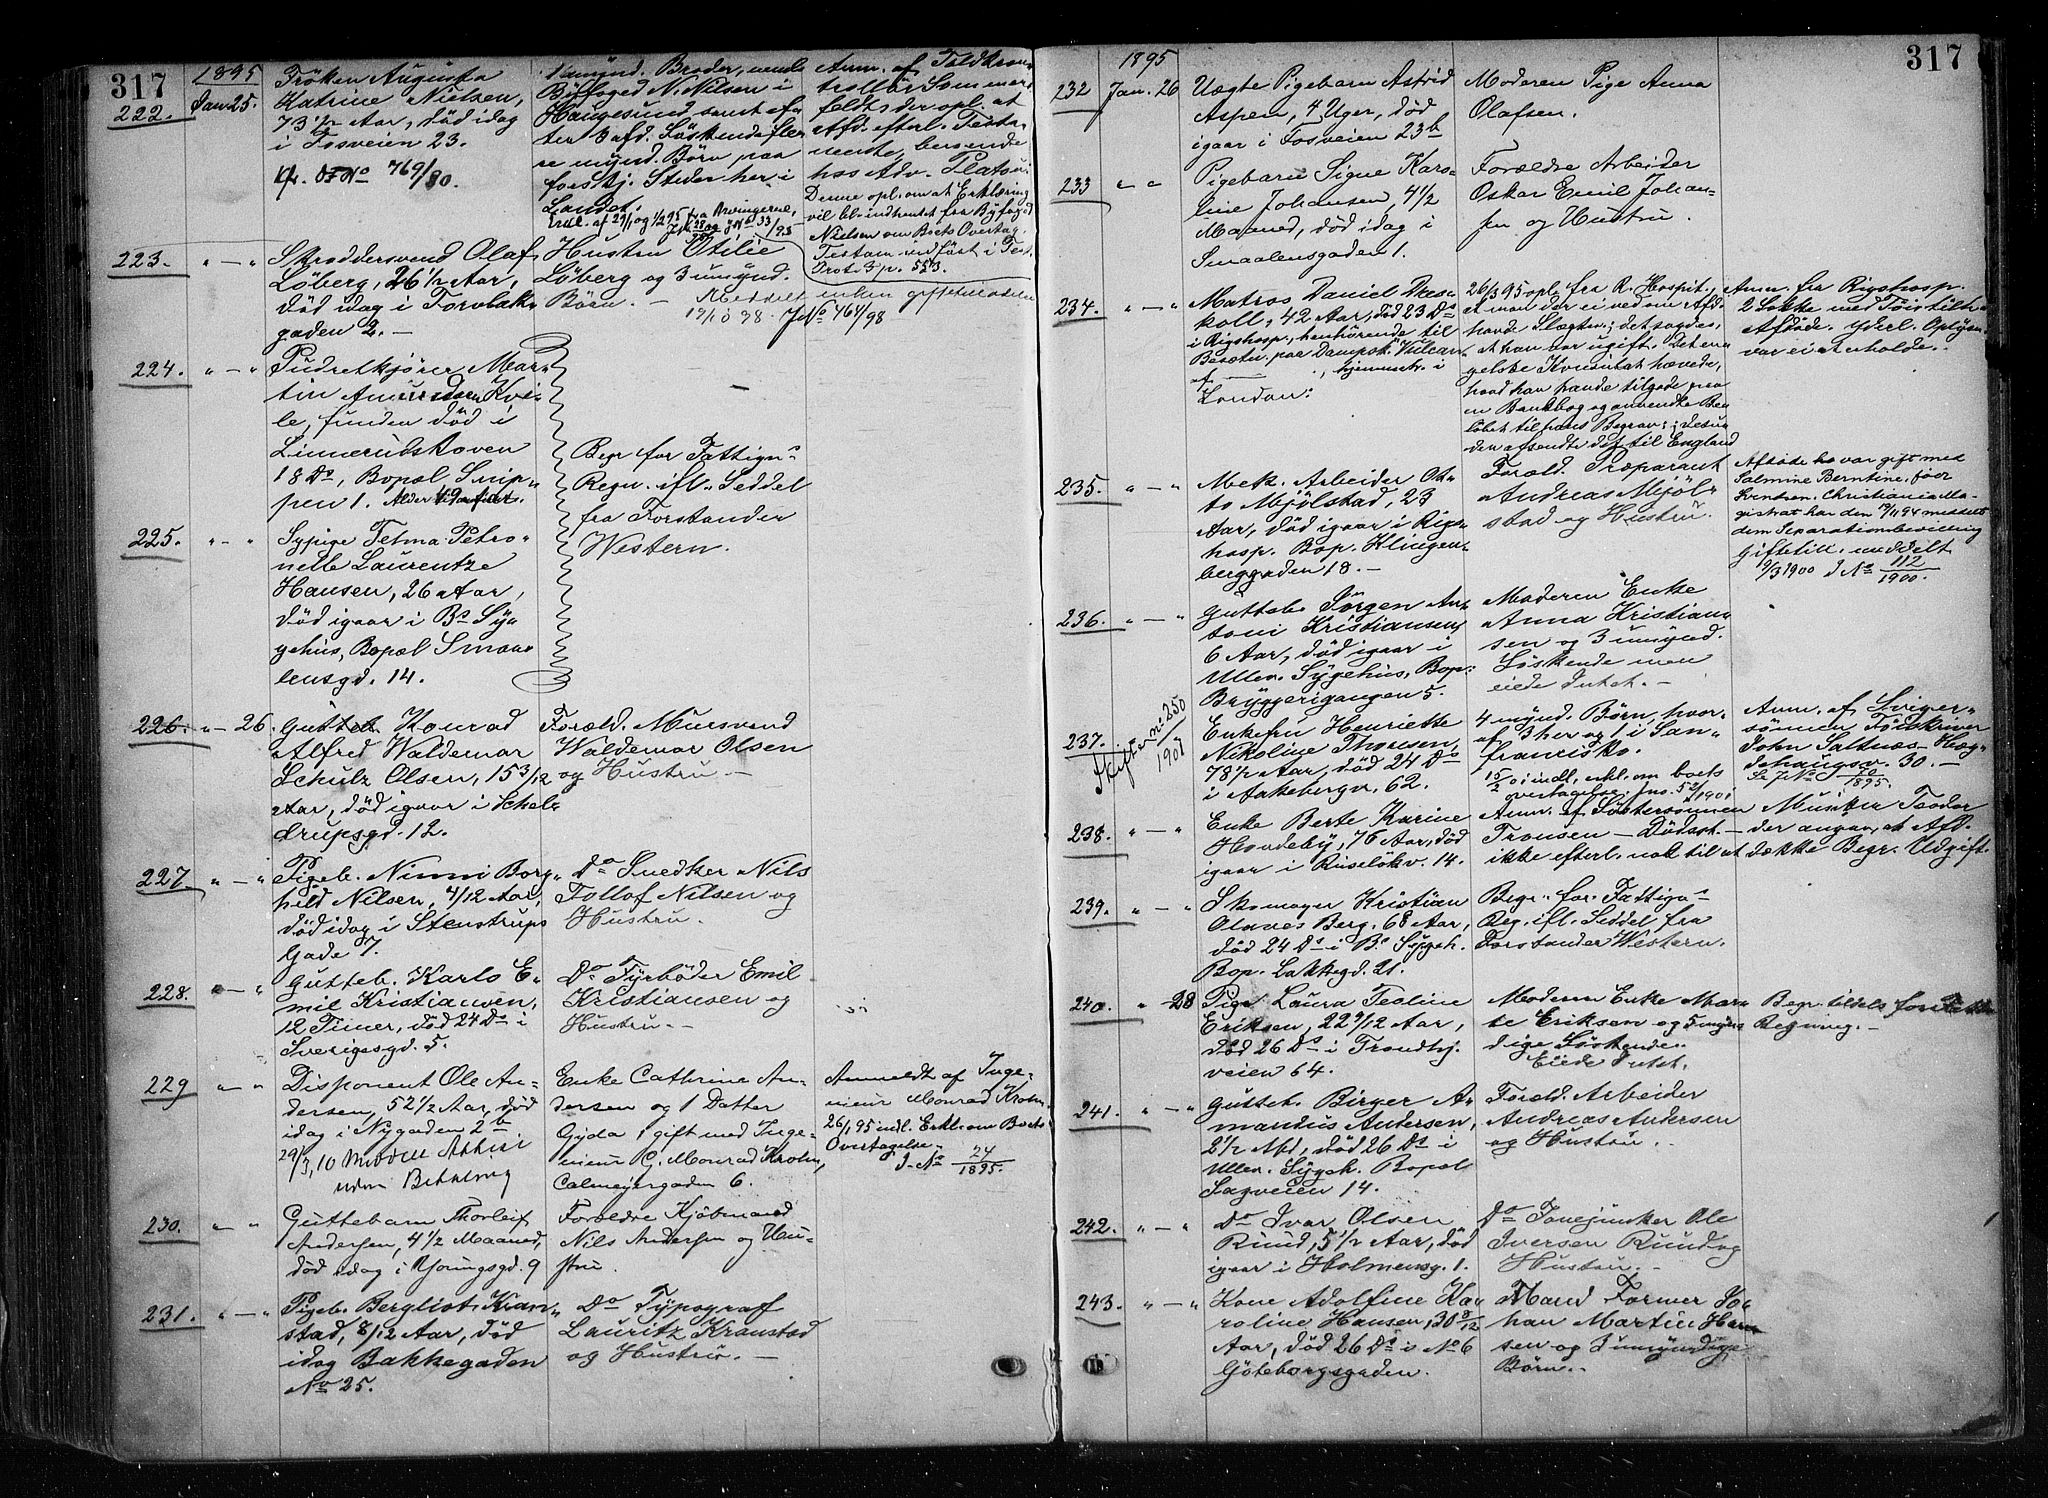 317
1895
222.
Jan 25.
Fröken Augusta
Katrine Nielsen,
73 1/2 Aar, död idag
i Fosveien 23.
769/80.
1 umynd. Broder, nemlig
Byfoged N. Nilsen i
Haugesund samt ef-
ter 3 afd. Söskende fle-
re mynd. Börn paa
forskj. Steder her i
Landet.
Erkl. af 29/1 og 1/2 95 fra Arvingerne,
Anm. af Toldkon-
trollör Sommer-
feldt, der opl. at
Afd. efterl. Testa-
mente, beroende
hos Adv. Platou.
Denne opl. om at Erklæring
vil bli indhentet fra Byfoged
Nielsen om Boets Overtag.
Testam. indført i Test.
Prot. 3 p. 553.
223.
" — "
Skræddersvend Olaf
Löberg, 26 1/2 Aar,
död idag i
gaden 2. —
Hustru Otilie
Löberg og 3 umynd.
Börn. — Meddelt enken
19/10 98. J No 464/98
224.
" — "
Pudretkjörer Mar-
tin Amundsen Kvi-
le, funden död i
Linnerudskoven
18 Ds, Bopæl Snip-
pen 1. Alder 49 Aar.
Begr for Fattigv.s
Regn. ifl. Seddel
fra Forstander
Western.
225.
" — "
Sypige Telma Petro-
nelle Laurentze
Hansen, 26 Aar,
död igaar i Bs Sy-
gehus, Bopæl Smaa-
lensgd. 14.
226.
" — 26.
Gutteb. Konrad
Alfred Waldemar
Schulz Olsen, 15 3/12
Aar, död igaar i Schel-
drupsgd. 12.
Foræld. Mursvend
Waldemar Olsen
og Hustru. —
227.
" — "
Pigeb. Ninni Borg-
hild Nilsen, 4/12 Aar,
död idag i Stenstrups
Gade 7.
Do Snedker Nils
Tollof Nilsen og
Hustru.
228.
" — "
Gutteb. Karlo E-
mil Kristiansen,
12 Timer, död 24 Ds i
Sverigesgd. 5.
Do Fyrböder Emil
Kristiansen og
Hustru. —
229
" — "
Disponent Ole An-
dersen, 52 1/2 Aar, död
idag i Nygaden 2b
29/3 10 Meddelt Attest
uden Betaling
Enke Cathrine An-
dersen og 1 Datter
Gyda, gift med Inge-
nieur G. Monrad Krohn,
Calmeyergaden 6.
Anmeldt af Inge-
nieur Monrad Krohn.
26/1 95 indl. Erkl. om Boets
Overtagelse.
J. No 24/1895.
230.
" — "
Guttebarn Thorleif
Andersen, 4 1/2 Maaned,
död idag i Gjöringsgd. 9
Forældre Kjöbmand
Nils Andersen og Hu-
stru.
231.
" — "
Pigeb. Bergliot Kran-
stad, 8/12 Aar, död
idag Bakkegaden
No 25.
Do Typograf
Lauritz Kranstad
og Hustru. —
317
1895
232
Jan. 26
Uægte Pigebarn Astrid
Aspen, 4 Uger, död
igaar i Fosveien 23b
Moderen Pige Anna
Olafsen.
233
" "
Pigebarn Signe Karo-
line Johansen, 4 1/2
Maaned, död idag i
Smaalensgaden 1.
Forældre Arbeider
Oskar Emil Johan-
sen og Hustru.
234.
" — "
Matros Daniel
42 Aar, död 23 Ds
i Rigshosp., henhörende til
Besætn. paa Dampsk. "Vulcan"
af ——, hjemmeh. i
London:
26/3 95 opl. fra R. Hospit.,
at man der ei ved om Afd.
havde Slægten; det sagdes,
at han var ugift. Det en-
gelske Konsulat hævede,
hvad han havde tilgode paa
en Bankbog og anvendte Be-
löbet til hans Begrav.; desu-
den afsendte det til England
Anm. fra Rigshosp.
2 Sække med Töi tilh.
Afdöde. Yderl. Oplysn.
var ei at erholde. —
235.
" — "
Mek. Arbeider Ot-
to Mjölstad, 23
Aar, död igaar i Rigs-
hosp. Bop. Klingen-
berggaden 18. —
Foræld. Præparant
Andreas Mjöl-
stad og Hustru.
Afdöde har var gift med
Salmine Berntine, födt
Svendsen. Christiania Ma-
gistrat har den 19/11 94 meddelt
dem Separationsbevilling
Giftetill. meddelt
9/3 1900 J No 112/1900.
236.
" — "
Gutteb. Jörgen An-
toni Kristiansen,
6 Aar, död igaar i
Ullev. Sygehus, Bop:
Bryggerigangen 5.
Moderen Enke
Anna Kristian-
sen og 3 umynd.
Söskende men
eiede Intet. —
237.
Skifte No 250/1901
Enkefru Henriette
Nikoline Thoresen,
78 1/2 Aar, död 24 Ds
i Aakebergv. 62.
4 mynd. Börn, hvor-
af 3 her og 1 i San-
francisko.
15/2 01 indl. erkl. om boets
overtagelse. Jns. 52/1901
Anm. af Sviger-
sönnen Födskriver
John Saltnæs Hæg-
dehaugsv. 30. —
Se J No 70/1895.
238.
" — "
Enke Berte Karine
Hovdeby, 76 Aar, död
igaar i Ruselökv. 14.
Anm. af Söstersönnen Musiker Teodor
Tronsen — Dödsat. — der angav, at Afd.
ikke efterl. nok til at dække Begr. Udgift.
239.
" — "
Skomager Kristian
Olaves Berg, 68 Aar,
död 24 Ds i Bs Sygeh.
Bop. Lakkegd. 21.
Begr. for Fattigv.
Reg. ifl. Seddel fra
Forstander Western.
240.
" 28
Pige Laura Teoline
Eriksen, 22 9/12 Aar,
död 26 Ds i Trondhj.
veien 64.
Moderen Enke Mar-
te Eriksen og 5 myn-
dige Söskende.
Eiede Intet.
Begr. tildels for
Regning. —
241.
" — "
Gutteb. Birger A-
mandus Andersen,
2 1/2 Md, död 26 Ds i
Ullev. Sygeh. Bopæl
Sagveien 14.
Foræld. Arbeider
Andreas Andersen
og Hustru. —
242.
" — "
Do Ivar Olsen
Ruud, 5 1/2 Aar, död
igaar i Holmensg. 1.
Do Ole
Iversen Ruud og
Hustru. —
243.
" — "
Kone Adolfine Ka-
roline Hansen, 30 8/12
Aar, död 26 Ds i No 6
Göteborgsgaden.
Mand Former Jo-
han Martin Han-
sen og 3 umyndige
Börn. —